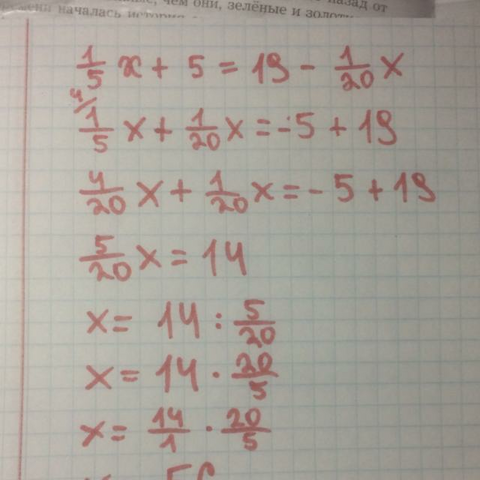 чем они, зелёные и
началась
1/5 x + 5 = 19 - 1/20 x
4/
1/5 x + 1/20 x = -5 + 19
4/20 x + 1/20 x = - 5 + 19
5/20 x = 14
x = 14 : 5/20
x = 14 · 20/5
x = 14/1 · 20/5